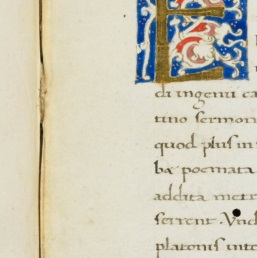 E
di ingenii ca
tino sermon
quod plus in
bæ poemata
addita metr
ferrent. Vnd
platonis inte